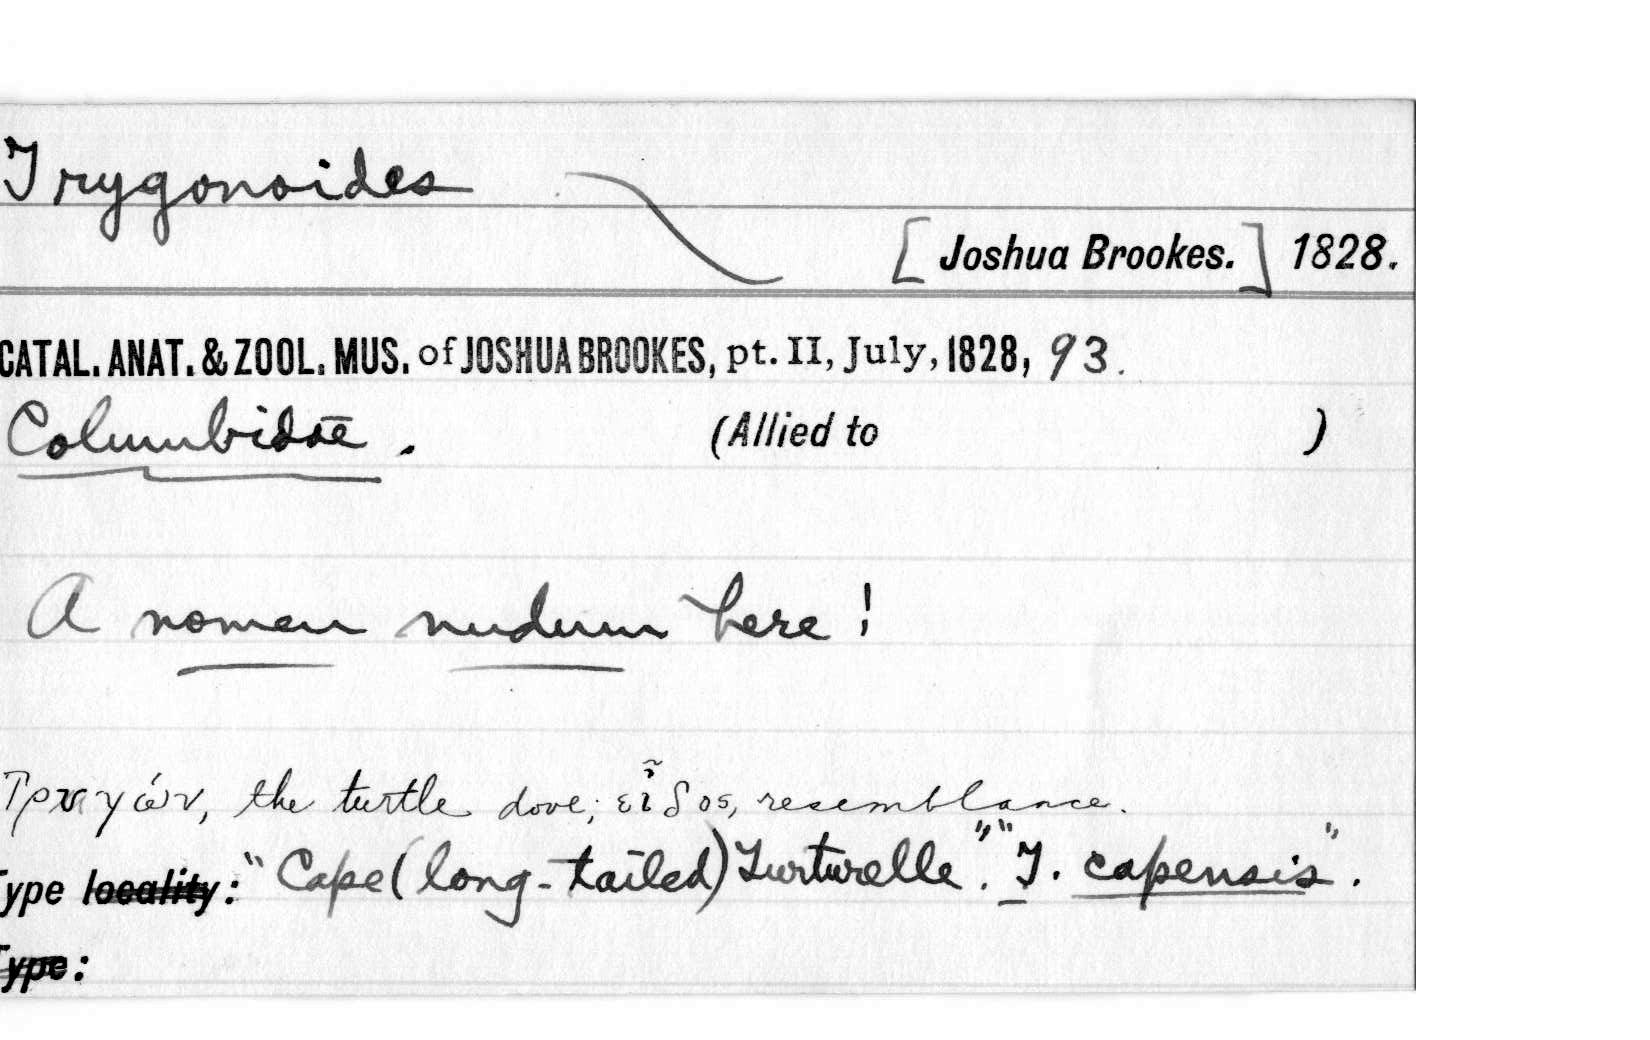 Trygonoides
[Joshua Brookes.] 1828.
CATAL. ANAT. & ZOOL. MUS. of JOSHUA BROOKES, pt. II, July, 1828, 93.
Columbidae. (Allied to )
A nomen nudum here!
Τρυγών, the turtle dove; εἶδος, resemblance.
Type locality: "Cape (long-tailed) Turturelle." "T. capensis".
Type: